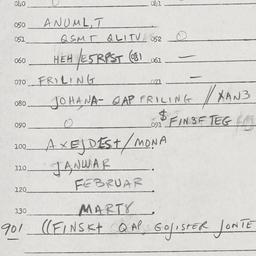 050 ANUML,T
051 QSMT QLITV 052 O
060 HEH/E5RPST (081 061 —
070 FRILING 071 —
080 JOHANA- QAP FRILING // XAN3
090 O 091 $FIN3F TEG
100 AXEJDEST/MONA
110 JANWAR .
120 FEBRUAR
130 MARTY .
901 ((FINSKt QAP, GOJISTER JONTE